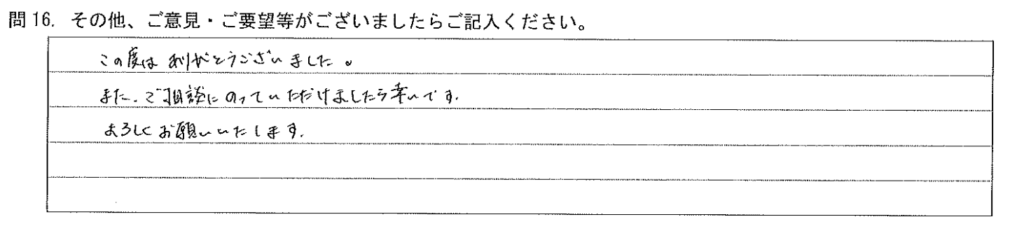 問16. その他、ご意見・ご要望等がございましたらご記入ください。
この度はありがとうございました。
また、ご相談にのっていただけましたら幸いです.
よろしくお願いいたします.